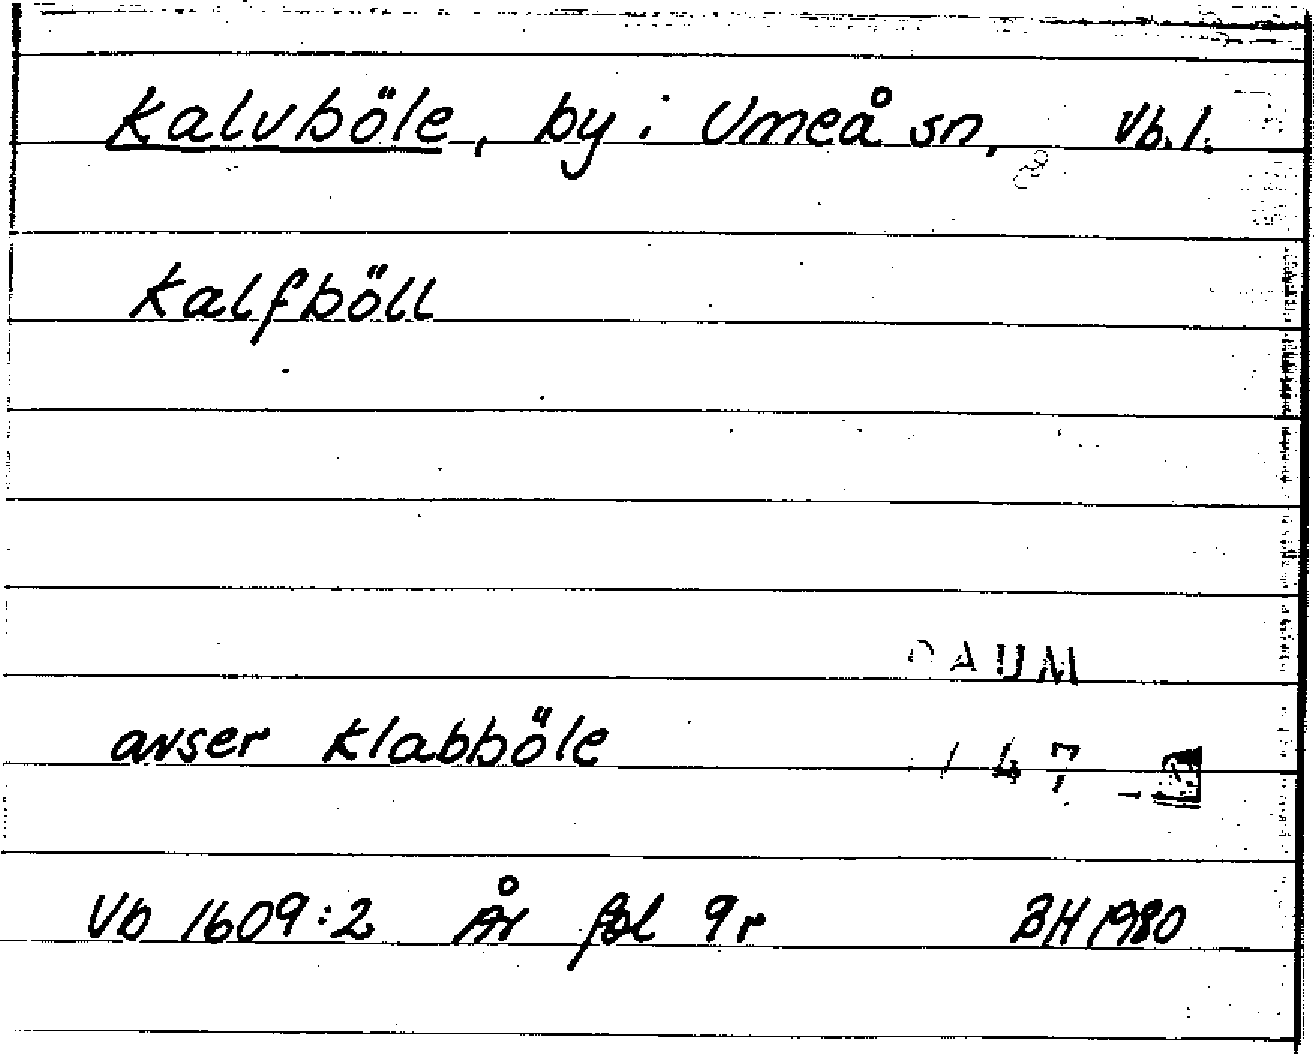 Kalvböle, by i Umeå sn, Vb. l.
Kalfböll
DAUM
avser Klabböle
147
Vb 1609:2 År fol 9r BH 1980